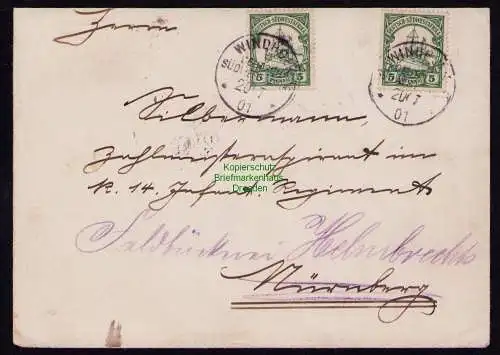 Herrn
DEUTSCH-SÜDWESTAFRIKA
5 PFENNIG 5
DEUTSCH-SÜDWESTAFRIKA
5 5
WINDHOEK
20/7
01
WINDH
20/7
01
Silbermann,
Zahlmeisteraspirant im
K. 14. Infant. Regiment
Kopierschutz
Briefmarkenhaus
Dresden
Helmbrechts
Nürnberg